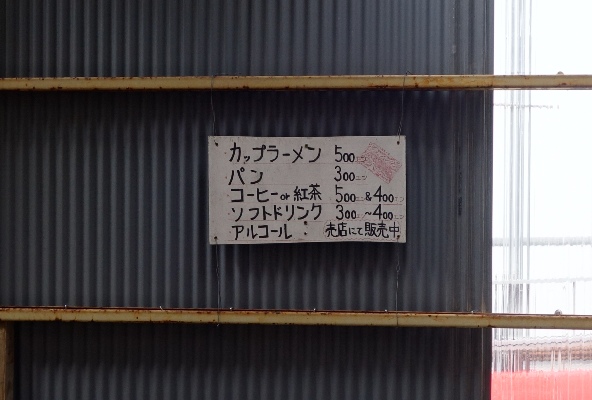 カップラーメン 500エン
パン 300エン
コーヒーor紅茶 500エン&400エン
ソフトドリンク 300エン~400エン
アルコール : 売店にて販売中